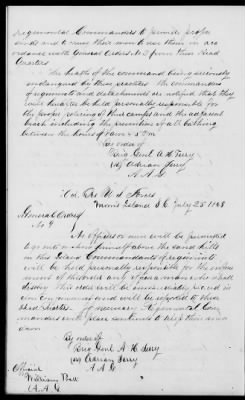 Regimental Commanders to permit proper
sinks and to cause their men to use them in acc
ordance with General Orders No 2 from these Head
Quarters
The health of the command being seriously
endangered by these practices the commanders
of regiments and detachments are notified that they
will hereafter be held personally responsible for
the proper policing of their camps and the adjacent
beach including the prevention of all bathing
between the hours of 8 am & 5 P.M.
By order of
Brig Genl A H Terry
Adrian Terry
A A G
Hd. Qrs U S Forces
Morris Island S C July 25 1863
General Orders
No 9
No officer or man will be permitted
to go out or show himself above the sand hills
on this Island Commandants of regiments
will be held personally responsible for the enforce
ment of this order and if any man or men shall
disobey this order will be immediately
and will be reported to these
Head Quarters. If necessary Regimental Com
manders will place sentinels to keep their men
down
By order of
Brig Genl A H Terry
Adrian Terry
A A G
Official
William
A A G